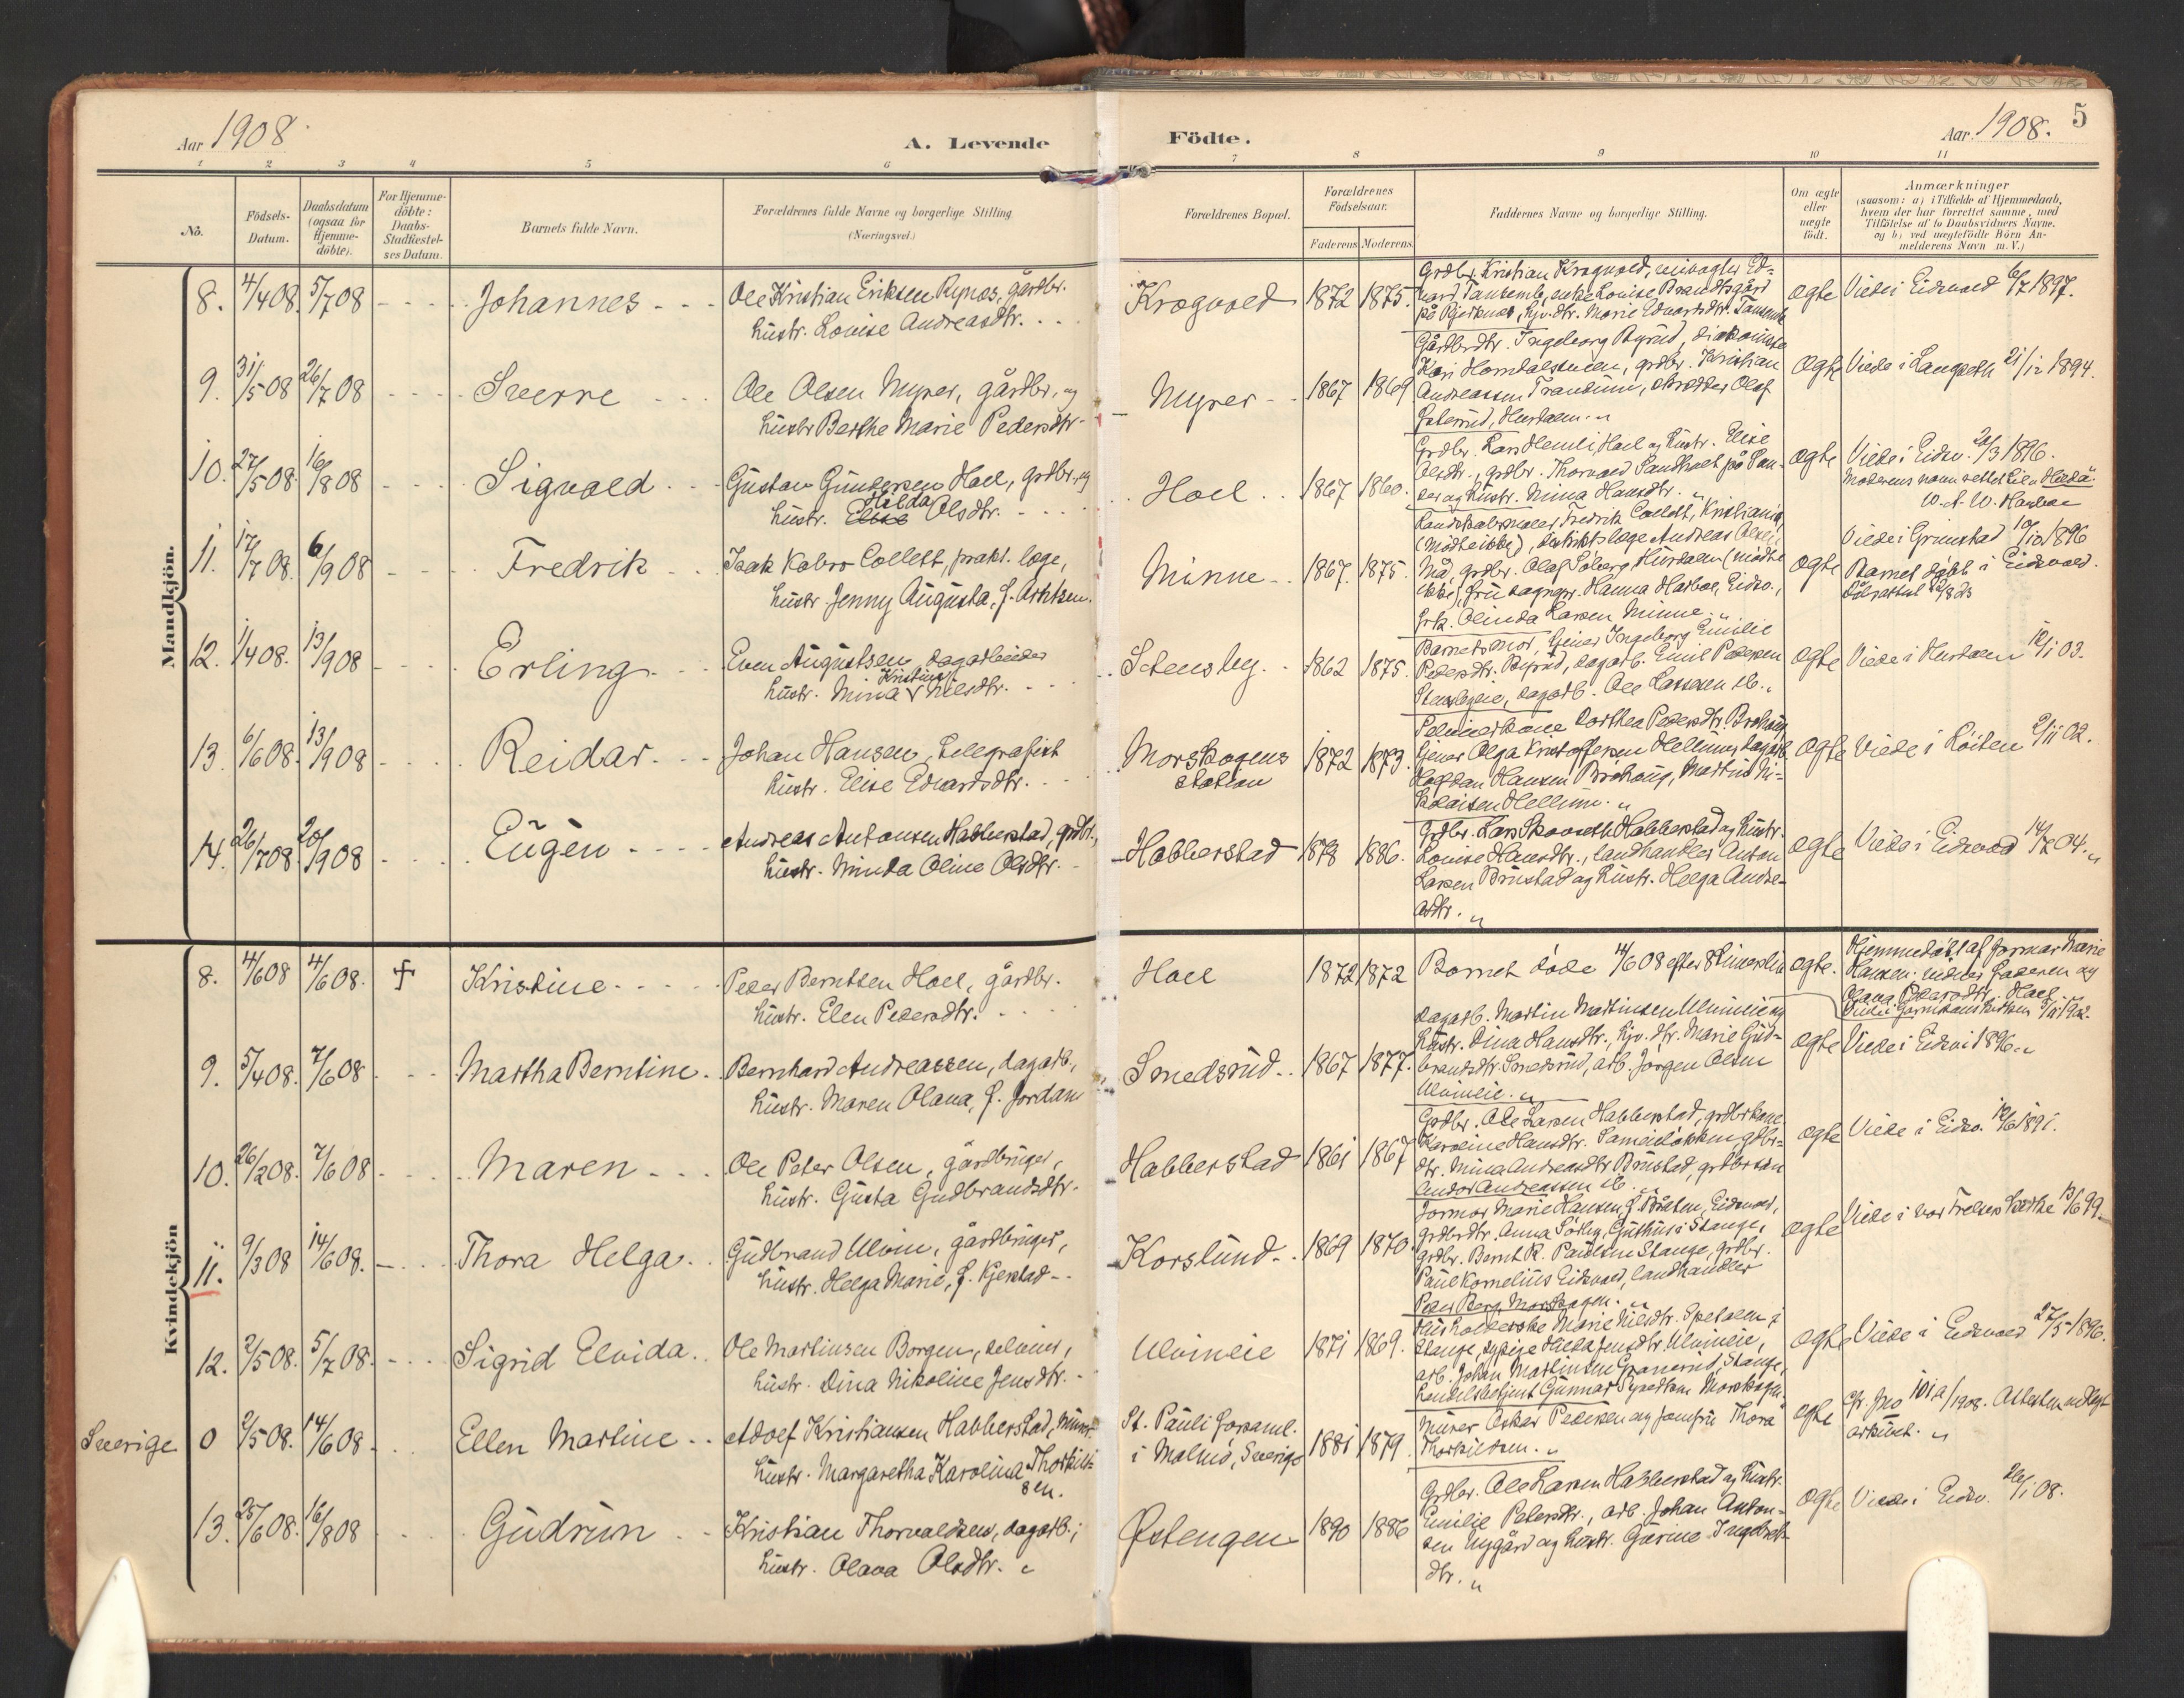 Aar 1908
A. Levende
Födte.
Aar 1908. 5
1 2 3 4 5 6 7 8 9 10 11
No.
Födsels-Datum.
Daabsdatum (ogsaa for Hjemme-döbte).
For Hjemme-döbte: Daabs-Stadfæstel-ses Datum.
Barnets fulde Navn.
Forældrenes fulde Navne og borgerlige Stilling (Næringsvei.)
Forældrenes Bopæl.
Forældrenes Födselsaar.
Faderens Moderens.
Faddernes Navne og borgerlige Stilling.
Om ægte eller uægte födt.
Anmærkninger
(saasom: a) i Tilfælde af Hjemmedaab,
hvem der har forrettet samme, med
Tilföielse af to Daabsvidners Navne,
og b) ved uægtefödte Börn An-
melderens Navn m. V.)
Mandkjön.
8. 4/4 08. 5/7 08 Johannes
Ole Kristian Eriksen Rynos, gårdbr.
hustr. Lovise Andreasdtr.
Krogvold 1872 1875.
Grdbr. Kristian Krogvold, Ed-
vard Tansemb, enke Lovise Brandtsgård
Marie Edvartsdtr.
ægte Viede i Eidsvold 6/7 1897.
9. 31/5 08 26/7 08 Sverre
Ole Olsen Myrer, gårdbr. og
hustr Berthe Marie Pedersdtr
Myrer 1867 1869
Gårdbrdtr. Ingeborg Byrud,
grdbr. Kristian
Andreassen Olaf
ægte Viede i Langseth 21/12 1894.
10. 27/5 08. 16/8 08 Sigvald
Gustav Gundersen Hoel, grdbr. og
hustr. Elise Hilda Olsdtr.
Hoel 1867 1860.
Grdbr. Lars Hoel og hustr. Elise
Olsdtr., grdbr. Thorvald Sandholt på
og hustr. Mina Hansdtr.
ægte Viede i Eidsv. 20/3 1896.
Moderens navn rettet til Hilda.
11. 17/7 08. 6/9 08 Fredrik
Isak Kobro Collett, prakt. læge,
hustr Jenny Augusta, f. Arntzen.
Minne 1867. 1875.
Landskabsmaler Fredrik Collett, Kristiania,
(mødte ikke), distriktslæge Andreas
grdbr. Olaf Hurdalen (mødte
ikke), fru Hanna Harboe, Eidsv.,
frk. Olinda Larsen Minne.
ægte Viede i Grimstad 10/10 1896
Barnet døbt i Eidsvold.
12. 1/4 08. 13/9 08 Erling
Even Augustsen, dagarbeider
hustr. Mina Kristine Nilsdtr.
Stensby 1862 1875.
Barnets mor, Ingeborg Emilie
Pedersdtr. Byrud, dagarb. Emil Pedersen
dagarb. Ole Larssen
ægte Viede i Hurdalen 03.
13. 6/6 08. 13/9 08 Reidar
Johan Hansen, telegrafist
hustr. Elise Edvardsdtr.
Morskogens station 1872 1873.
Dorthea Pedersdtr. Brohaug,
Olga Kristoffersen Hellum, dagarb.
Halfdan Hansen Brohaug, Martin Ni-
kolaisen Hellum.
ægte Viede i Löiten 2/11 02.
14. 26/7 08. 20/9 08 Eugen
Andreas Antonsen Habberstad, grdbr.,
hustr. Minda Oline Olsdtr.
Habberstad 1878 1886.
Grdbr. Lars Habberstad og hustr.
Lovise Hansdtr., landhandler Anton
Larsen Brustad og hustr. Helga Andre-
asdtr.
ægte Viede i Eidsvold 14/7 04.
Kvindekjön
8. 4/6 08 4/6 08. + Kristine
Peder Berntsen Hoel, gårdbr.
hustr. Elen Pedersdtr.
Hoel 1872 1872
Barnet døde 4/6 08 efter 8 timers liv
ægte. Hjemmedøbt af jormor Marie
Hansen. Vidner faderen og
Olava Pedersdtr. Hoel
9. 5/4 08. 7/6 08 Martha Berntine
Bernhard Andreassen, dagarb.,
hustr. Maren Olava, f. Jordan
Smedsrud 1867 1877.
Dagarb. Martin Martinsen Ulvineie og
hustr. Dina Hansdtr., Marie Gud-
brandsdtr. Smedsrud, arb. Jørgen Olsen
Ulvineie.
ægte Viede i Eidsv. 1896.
10. 26/2 08. 7/6 08 Maren
Ole Peter Olsen, gårdbruger,
hustr. Gusta Gudbrandsdtr.
Habberstad 1861 1867
Grdbr. Ole Larsen Habberstad, grdbrkone
Karoline Hansdtr. gdbr-
dtr. Mina Andreasdtr. Brustad, grdbrsøn
Andor Andreassen
ægte Viede i Eidsv. 1891.
11. 9/3 08 14/6 08. Thora Helga
Gudbrand Ulvin, gårdbruger,
hustr. Helga Marie, f. Kjerstad
Korslund 1869 1870.
Jormor Marie Hansen, f. Bråten, Eidsvold,
grdbrdtr. Anna Guthus i Stange,
grdbr. Bernt K. Paulsen Stange, grdbr.
Paul Kornelius Eidsvold, landhandler
Peder Berg, Morskogen.
ægte Viede i vor Frelsers kirke 13/6 99.
12. 2/5 08. 5/7 08. Sigrid Elvida
Ole Martinsen Borgen, selveier,
hustr. Dina Nikoline Jensdtr.
Ulvineie 1871 1869.
Husholderske Marie Nilsdtr. i
Stange, sypige Hilda Jensdtr. Ulvineie,
arb. Johan Martinsen Granerud, Stange,
handelsbetjent Gunnar Morskogen.
ægte Viede i Eidsvold 27/5 1896.
Sverige 0 2/5 08. 14/6 08 Ellen Martine
Adolf Kristiansen Habberstad, murer
hustr. Margaretha Karolina Thorkild-
sen.
St. Pauli forsaml. i Malmö, Sverige 1881 1879
Murer Oskar Pedersen og jomfru Thora
Thorkildsen.
ægte Cfr. jno 101a/1908. Attesten nedlagt
arkivet.
13. 25/6 08. 16/8 08 Gudrun
Kristian Thorvaldsen, dagarb.;
hustr. Olava Olsdtr.
Østengen 1890 1886
Grdbr. Ole Larsen Habberstad og hustr.
Emilie Petersdtr., arb. Johan Anton-
sen Nygård og hustr. Gurine Ingebrets-
dtr.
ægte Viede i Eidsv. 08.